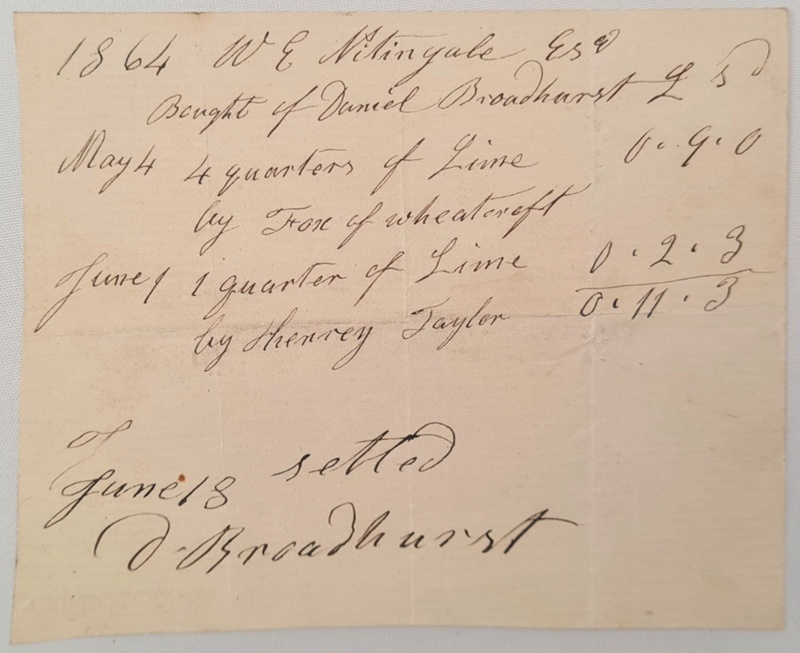 1864 W E Nitingale Esqr
Bought of Daniel Broadhurst £ s d
May 4 4 quarters of Lime 0 . 9 . 0
by Fox of wheatcroft
June 1 1 quarter of Lime 0 . 2 . 3
by Henrey Taylor 0 . 11 . 3
June 18 settled
D Broadhurst